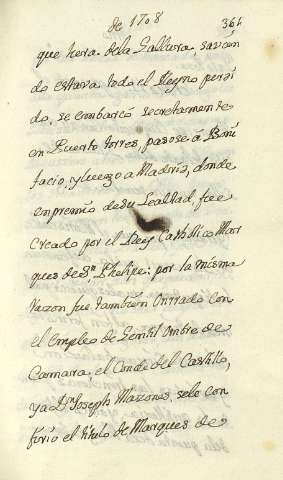 de 1708
364
que hera dela Gallura, savien
do estava todo el Reyno perdi
do, se embarcó secretamente
en Puerto torres, pasose á Boni
facio, y luego a Madrid, donde
en premio de su Lealtad, fue
creado por el Rey Catholico Mar
ques de Sn. Phelipe: por la misma
razon fue tambien onrrado con
el Empleo de Gentil ombre de
Camara, el Conde del Castillo,
ya Dn. Joseph Mazones, sele con
firió el titulo de Marques de